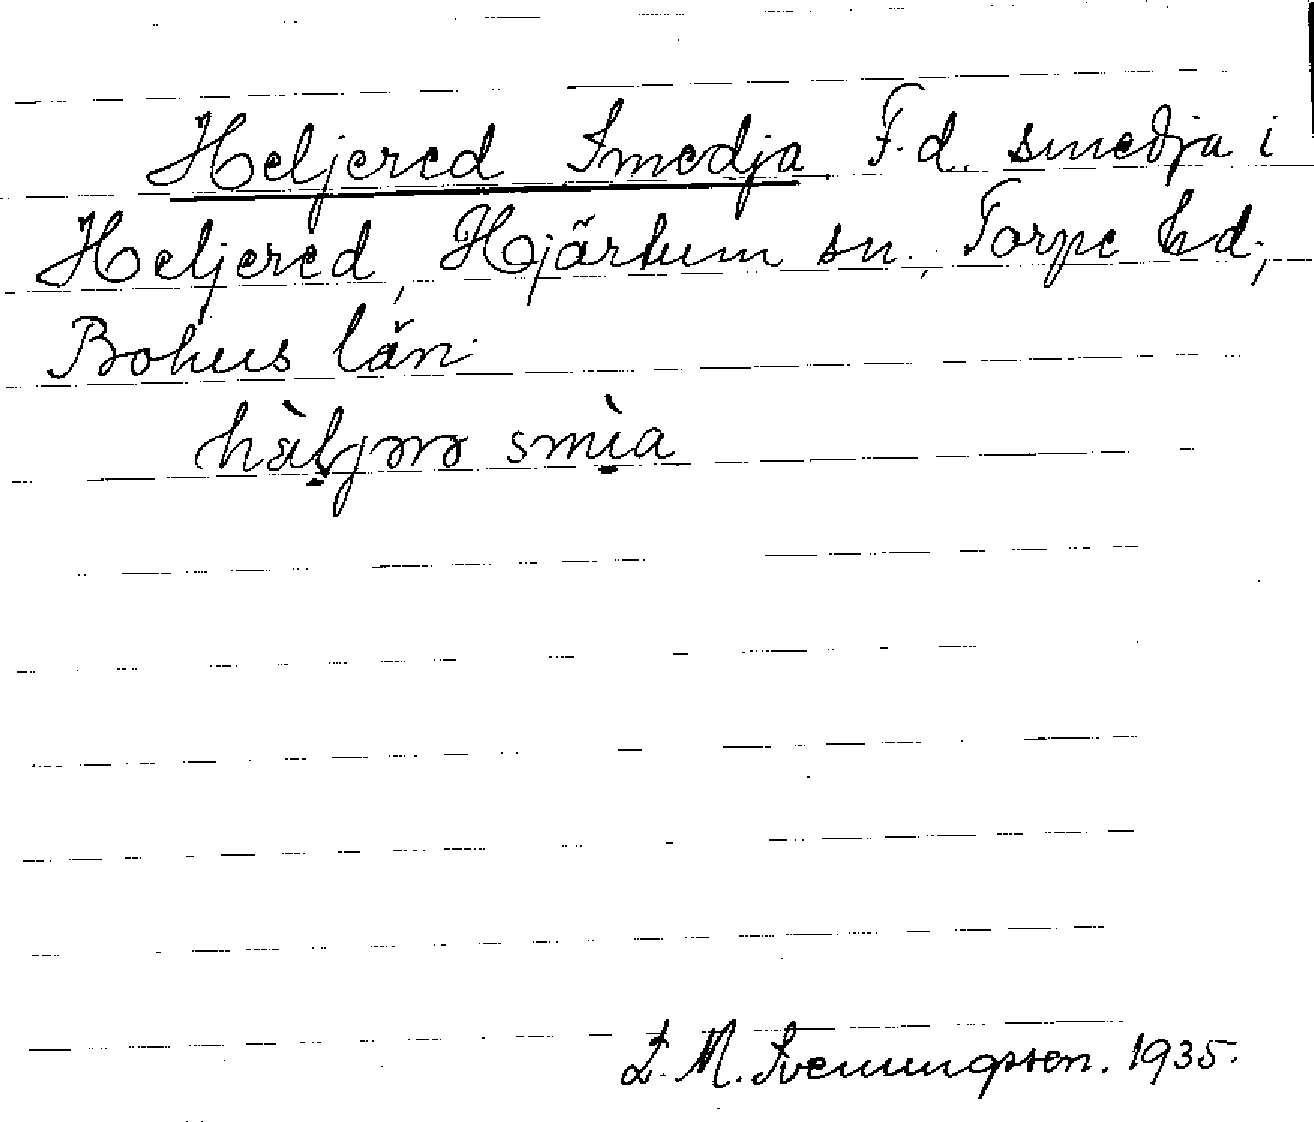 Heljered Smedja F.d. smedja i
Heljered, Hjärtum sn., Torpe hd.,
Bohus län.
hàljərə smìa
S. M. Svenningsson. 1935.